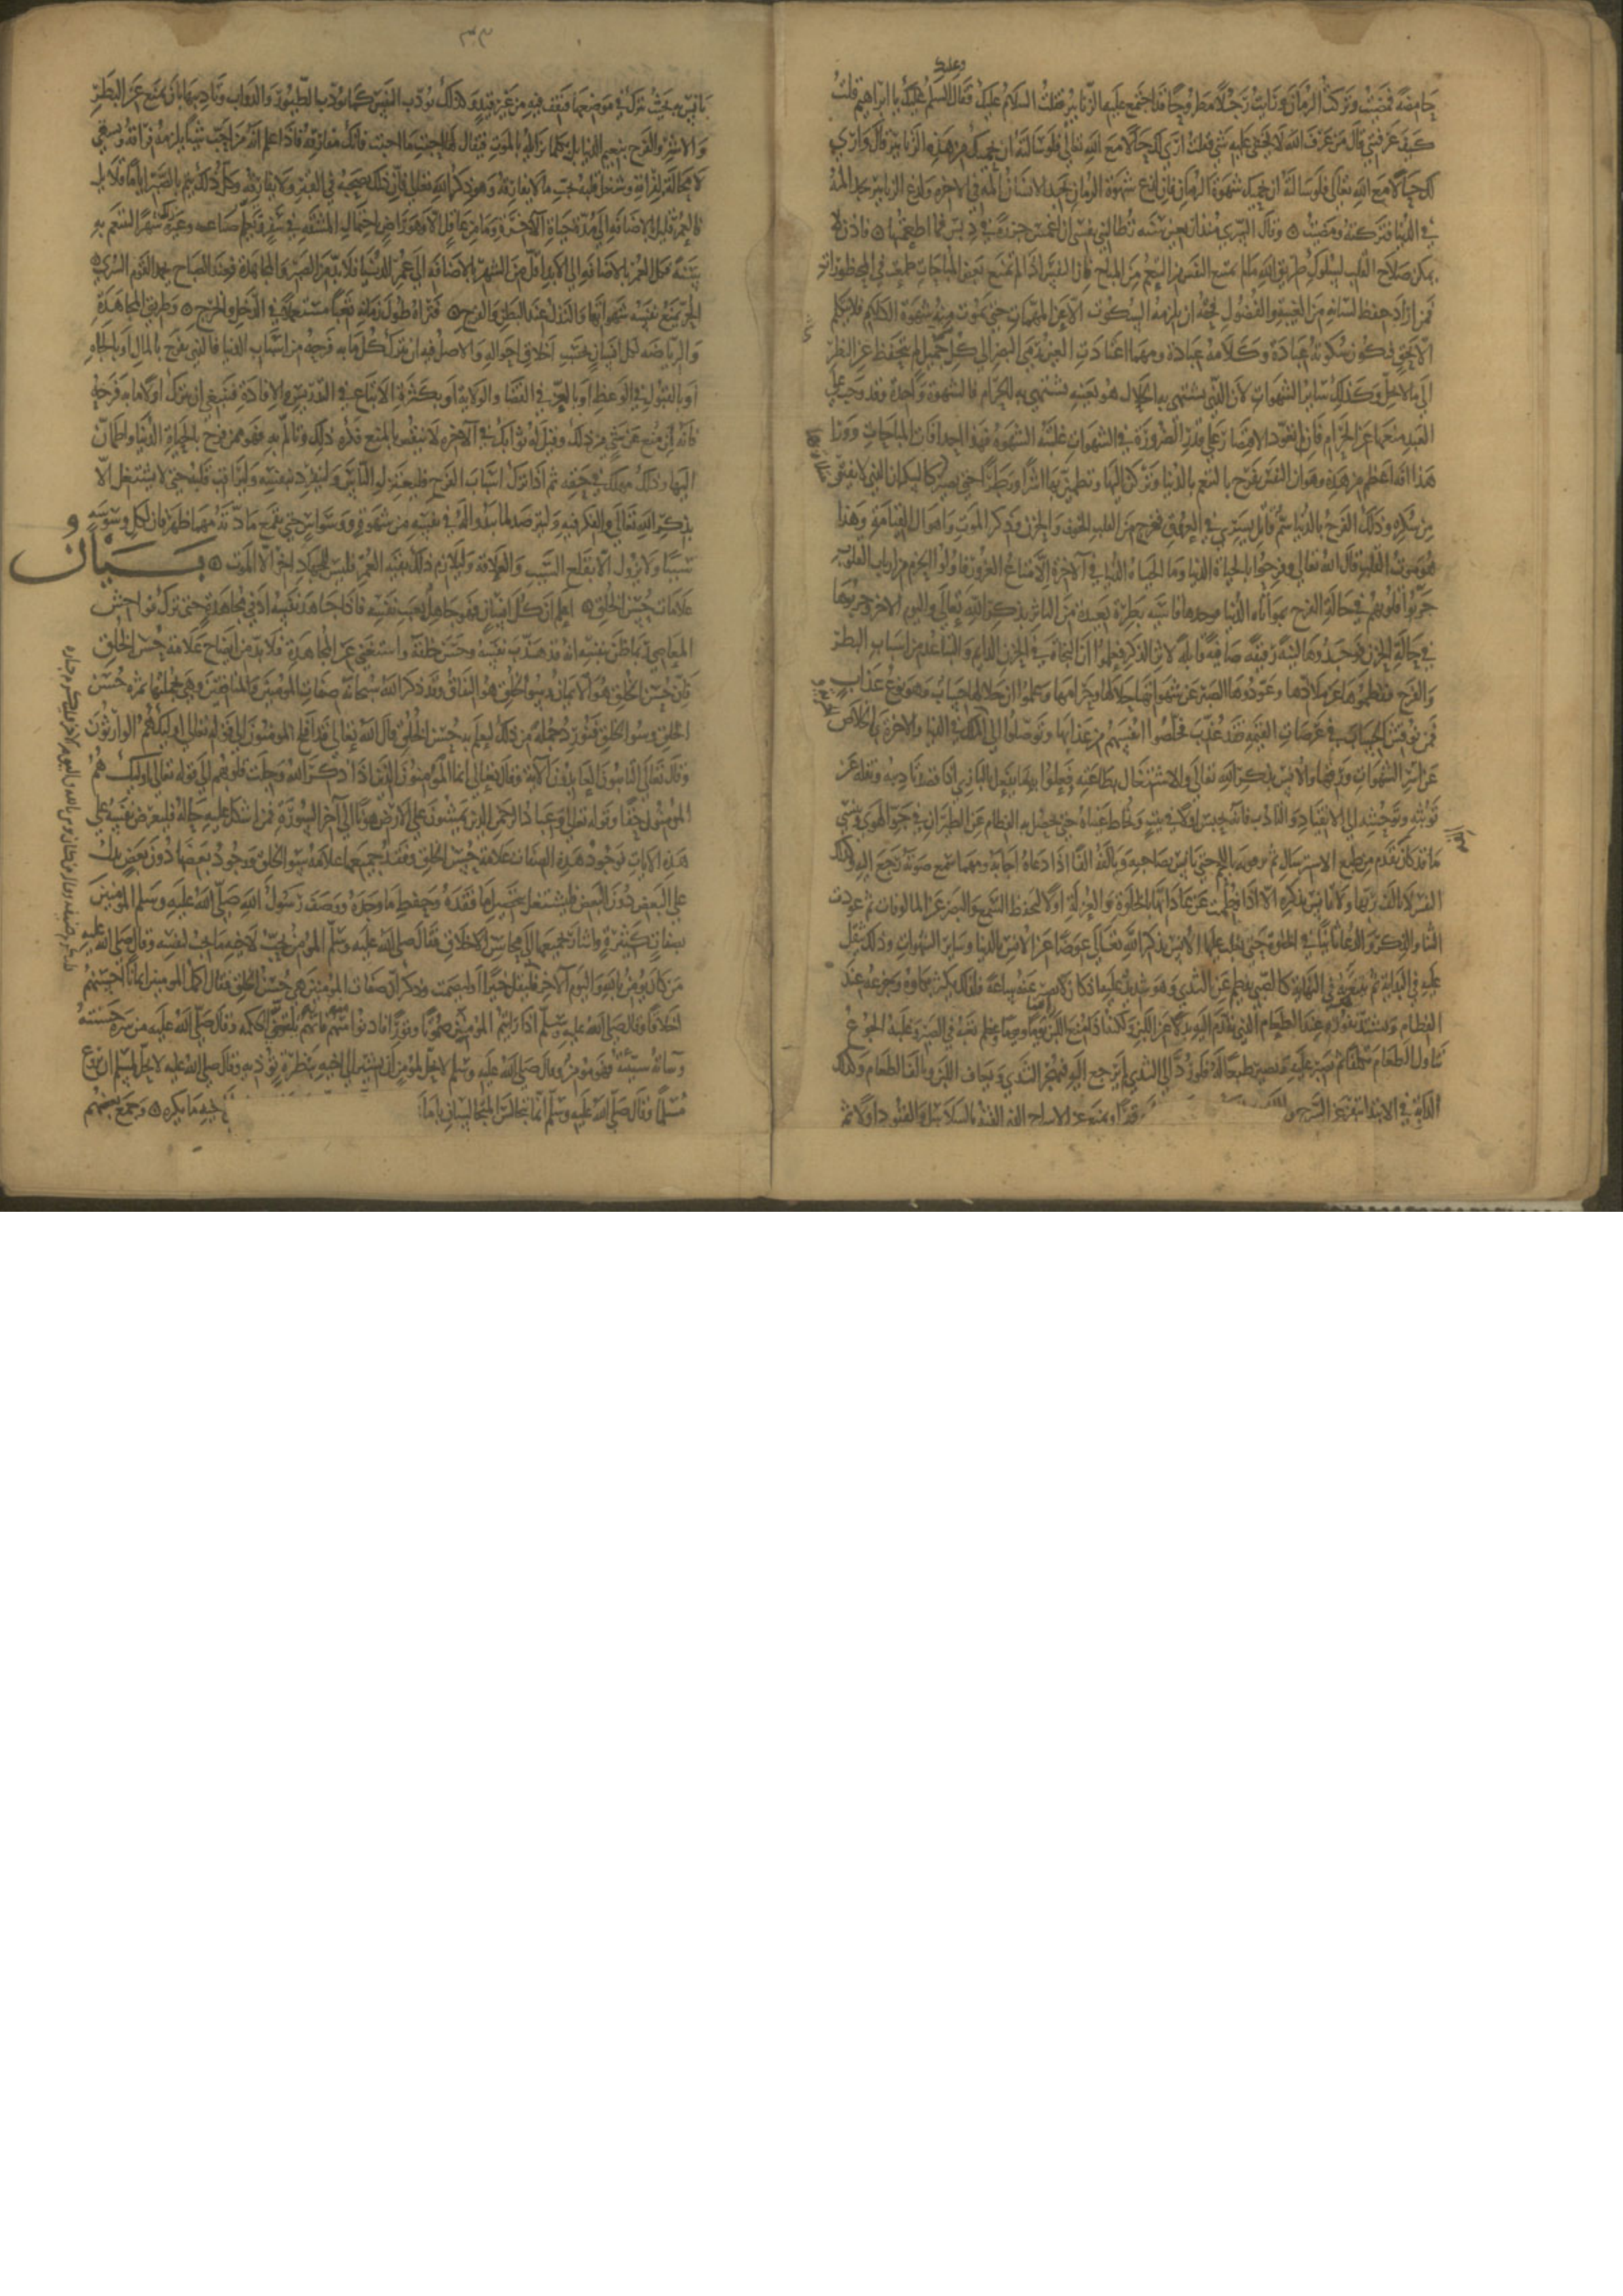 حامضة فمضيت وتركت الرمان فرأيت رجلا مطروحا قد اجتمع عليه الزنابير فقلت السلام عليك فقال وعليك السلم يا ابراهيم قلت
كيف عرفتني قال من عرف الله لا يخفى عليه شي فقلت ارى لك حالا مع الله تعالى فلو سالته ان يحميك من هذه الزنابير قال وارى
لك حالا مع الله تعالى فلو سالته ان يحميك شهوة الرمان فان لدغ شهوة الرمان يجد الانسان المه في الاخرة ولدغ الزنابير يجد المه
في الدنيا فتركته ومضيت وقال السري منذ اربعين سنه تطالبني نفسي ان اغمس جزرة في دبس فما اطعمتها فاذن لا
يمكن صلاح القلب لسلوك طريق الله ما لم يمنع النفس من التنعم من المباح فان النفس اذا لم تمنع بعض المباحات طمعت في المحظورات
فمن اراد حفظ لسانه من الغيبة والفضول فحقه ان يلزمه السكوت الا عن المهمات حتى تموت منه شهوة الكلام فلا يتكلم
الا بحق فيكون سكوته عبادة وكلامه عبادة ومهما اعتادت العين رمي البصر الى كل جميل لم تتحفظ عن النظر
الى ما لا يحل وكذلك سائر الشهوات لان الذي يشتهى به الحلال هو بعينه يشتهى به الحرام فالشهوة واحدة وقد وجب على
العبد منعها عن الحرام فان لم يعودها الاقتصار على قدر الضرورة في الشهوات غلبته الشهوة فهذه احدى افات المباحات وورا
هذا افة اعظم من هذه وهو ان النفس تفرح بالتنعم بالدنيا وتركن اليها وتطمين بها اشرا وبطرا حتى يصير كالسكران الذي لا يفيق
من سكره وذلك الفرح بالدنيا سم قاتل يسري في العروق فيخرج من القلب الخوف والحزن وذكر الموت واهوال القيامة وهذا
هو موت القلب قال الله تعالى وفرحوا بالحياة الدنيا وما الحياة الدنيا في الاخرة الا متاع الغرور فاولوا الحزم من ارباب القلوب
جربوا قلوبهم في حالة الفرح بمواتاه الدنيا فوجدوها قاسيه بطرة بعيدة من التاثر بذكر الله تعالى واليوم الاخر وجربوها
في حالة الحزن فوجدوها لينة رقيقة صافية قابلة لاثر الذكر فعلموا ان النجاة في الحزن الدايم والتباعد من اسباب البطر
والفرح ففطموها عن ملاذها وعودوها الصبر عن شهواتها حلالها وحرامها وعلموا ان حلالها حساب وهو نوع عذاب
فمن نوقش الحساب في عرصات القيمه فقد عذب فخلصوا انفسهم من عذابها وتوصلوا الى الملك في الدنيا والاخرة بالخلاص
عن اسر الشهوات ورقها والانس بذكر الله تعالى والاشتغال بطاعته ففعلوا بها ما يفعل بالبازي اذا قصد تاديبه ونقله عن
توثبه وتوحشه الى الانقياد والتاديب فانه يحبس اولا في بيت وتخاط عيناه حتى يحصل به الفطام عن الطيران في جو الهوى وينسى
ما قد كان تقدم من طبع الاسترسال ثم يرفق به باللحم حتى يانس بصاحبه ويالفه الفا اذا دعاه اجابه ومهما سمع صوته رجع اليه فكذلك
النفس لا تالف ربها ولا تانس بذكره الا اذا فطمت عن عادتها بالخلوة والعزلة اولا ليحفظ السمع والبصر عن المالوفات ثم عودت
الثنا والذكر والدعا ثانيا في الخلوة حتى يغلب عليها الانس بذكر الله تعالى عوضا عن الانس بالدنيا وساير الشهوات وذلك يثقل
عليه في البداية ثم يتنعم به في النهاية كالصبي يفطم عن الثدي وهو شديد عليه اذ كان لا يصبر عنه ساعة فلذلك يكثر بكاوه وجزعه عند
الفطام ويشتد نفوره عن الطعام الذي يقدم اليه بدلا عن اللبن ولكنه اذا منع اللبن يوما ويوما وعظم تعبه في الصبر وغلبه الجوع
تناول الطعام تكلفا ثم يصير عليه فيصير طبعا له فلو رد الى الثدي لم يرجع اليه فيهجر الثدي ويعاف اللبن ويالف الطعام وكذلك
الدابة في الابتدا تنفر عن السرج واللجام
قهرا ويمنع عن الاسراح الذي الفته بالسلاسل والقيود اولا ثم
٣٠٣
تانس بحيث تترك في موضعها فتقف فيه من غير قيد وكذلك تودب النفس كما تودب الطيور والدواب وتاديبها بان تمنع عن البطر
والاشر والفرح بنعيم الدنيا بل بكل ما تزايله بالموت فيقال لها احبب ما احببت فانك مفارقه فاذا علم انه من احب شيا يلزمه فراقه ويشقى
لا محالة لفراقه شغل قلبه بحب ما لا يفارقه وهو ذكر الله تعالى فان ذلك يصحبه في القبر ولا يفارقه وكل ذلك يتم بالصبر اياما قلايل
فالعمر قليل بالاضافة الى مدة حياة الاخرة وما من عاقل الا وهو راض باحتمال المشقه في سفر وتعلم صناعه وغيره شهرا ليتنعم به
سنة وكل العمر بالاضافة الى الابد اقل من الشهر بالاضافة الى عمر الدنيا فلا بد من الصبر والمجاهدة فعند الصباح يحمد القوم السرى
وطريق المجاهدة
والرياضه لكل انسان تختلف بحسب اختلاف احواله والاصل فيه ان يترك كل ما به فرحه من اسباب الدنيا فالذي يفرح بالمال او بالجاه
او بالقبول في الوعظ او بالعز في القضا والولاية او بكثرة الاتباع في التدريس والافادة فينبغي ان يترك اولا ما به فرحه
فانه ان منع عن شي من ذلك وقيل له ثوابك في الاخره لا ينقص بالمنع فكره ذلك وتالم به فهو ممن فرح بالحياة الدنيا واطمان
اليها وذلك مهلك في حقه ثم اذا ترك اسباب الفرح فليعتزل الناس ولينفرد بنفسه وليراقب قلبه حتى لا يشتغل الا
بذكر الله تعالى والفكر فيه وليترصد لما يبدوا له في نفسه من شهوة ووسواس حتى يقمع مادته مهما ظهر فان لكل وسوسه
سببا ولا يزول الا بقطع السبب والعلاقة وليلازم ذلك بقية العمر فليس للجهاد اخر الا الموت بيان
علامات حسن الخلق اعلم ان كل انسان فهو جاهل بعيب نفسه فاذا جاهد نفسه ادنى مجاهدة حتى ترك فواحش
المعاصي ربما ظن بنفسه انه قد هذب نفسه وحسن خلقه واستغنى عن المجاهدة فلا بد من ايضاح علامة حسن الخلق
فان حسن الخلق هو الايمان وسوء الخلق هو النفاق وقد ذكر الله سبحانه صفات المومنين والمنافقين وهي بجملتها ثمرة حسن
الخلق وسوء الخلق فنورد جملة من ذلك ليعلم به حسن الخلق قال الله تعالى قد افلح المومنون الى قوله تعالى اوليك هم الوارثون
وقال تعالى التايبون العابدون الاية وقال تعالى انما المومنون الذين اذا ذكر الله وجلت قلوبهم الى قوله تعالى اوليك هم
المومنون حقا وقوله تعالى وعباد الرحمن الذين يمشون على الارض هونا الى اخر السورة فمن اشكل عليه حاله فليعرض نفسه على
هذه الايات فوجود هذه الصفات علامة حسن الخلق وفقد جميعها علامة سوء الخلق ووجود بعضها دون بعض يدل
على البعض دون البعض فليشتغل بتحصيل ما فقده وحفظ ما وجده ووصف رسول الله صلى الله عليه وسلم المومنين
بصفات كثيرة واشار بجميعها الى محاسن الاخلاق فقال صلى الله عليه وسلم المومن يحب لاخيه ما يحب لنفسه وقال صلى الله عليه
من كان يومن بالله واليوم الاخر فليقل خيرا او ليصمت وذكر ان صفات المومنين هي حسن الخلق فقال اكمل المومنين ايمانا احسنهم
اخلاقا وقال صلى الله عليه وسلم اذا رايتم المومن صموتا وقورا فادنوا منه فانه يلقى الحكمه وقال صلى الله عليه من سرته حسنته
وساته سيئته فهو مومن وقال صلى الله عليه وسلم لا يحل لمومن ان يشير الى اخيه بنظرة توذيه وقال صلى الله عليه لا يحل لمسلم ان يروع
مسلما وقال صلى الله عليه وسلم انما يتجالس المتجالسان بامانة
اخيه ما يكره وجمع بعضهم